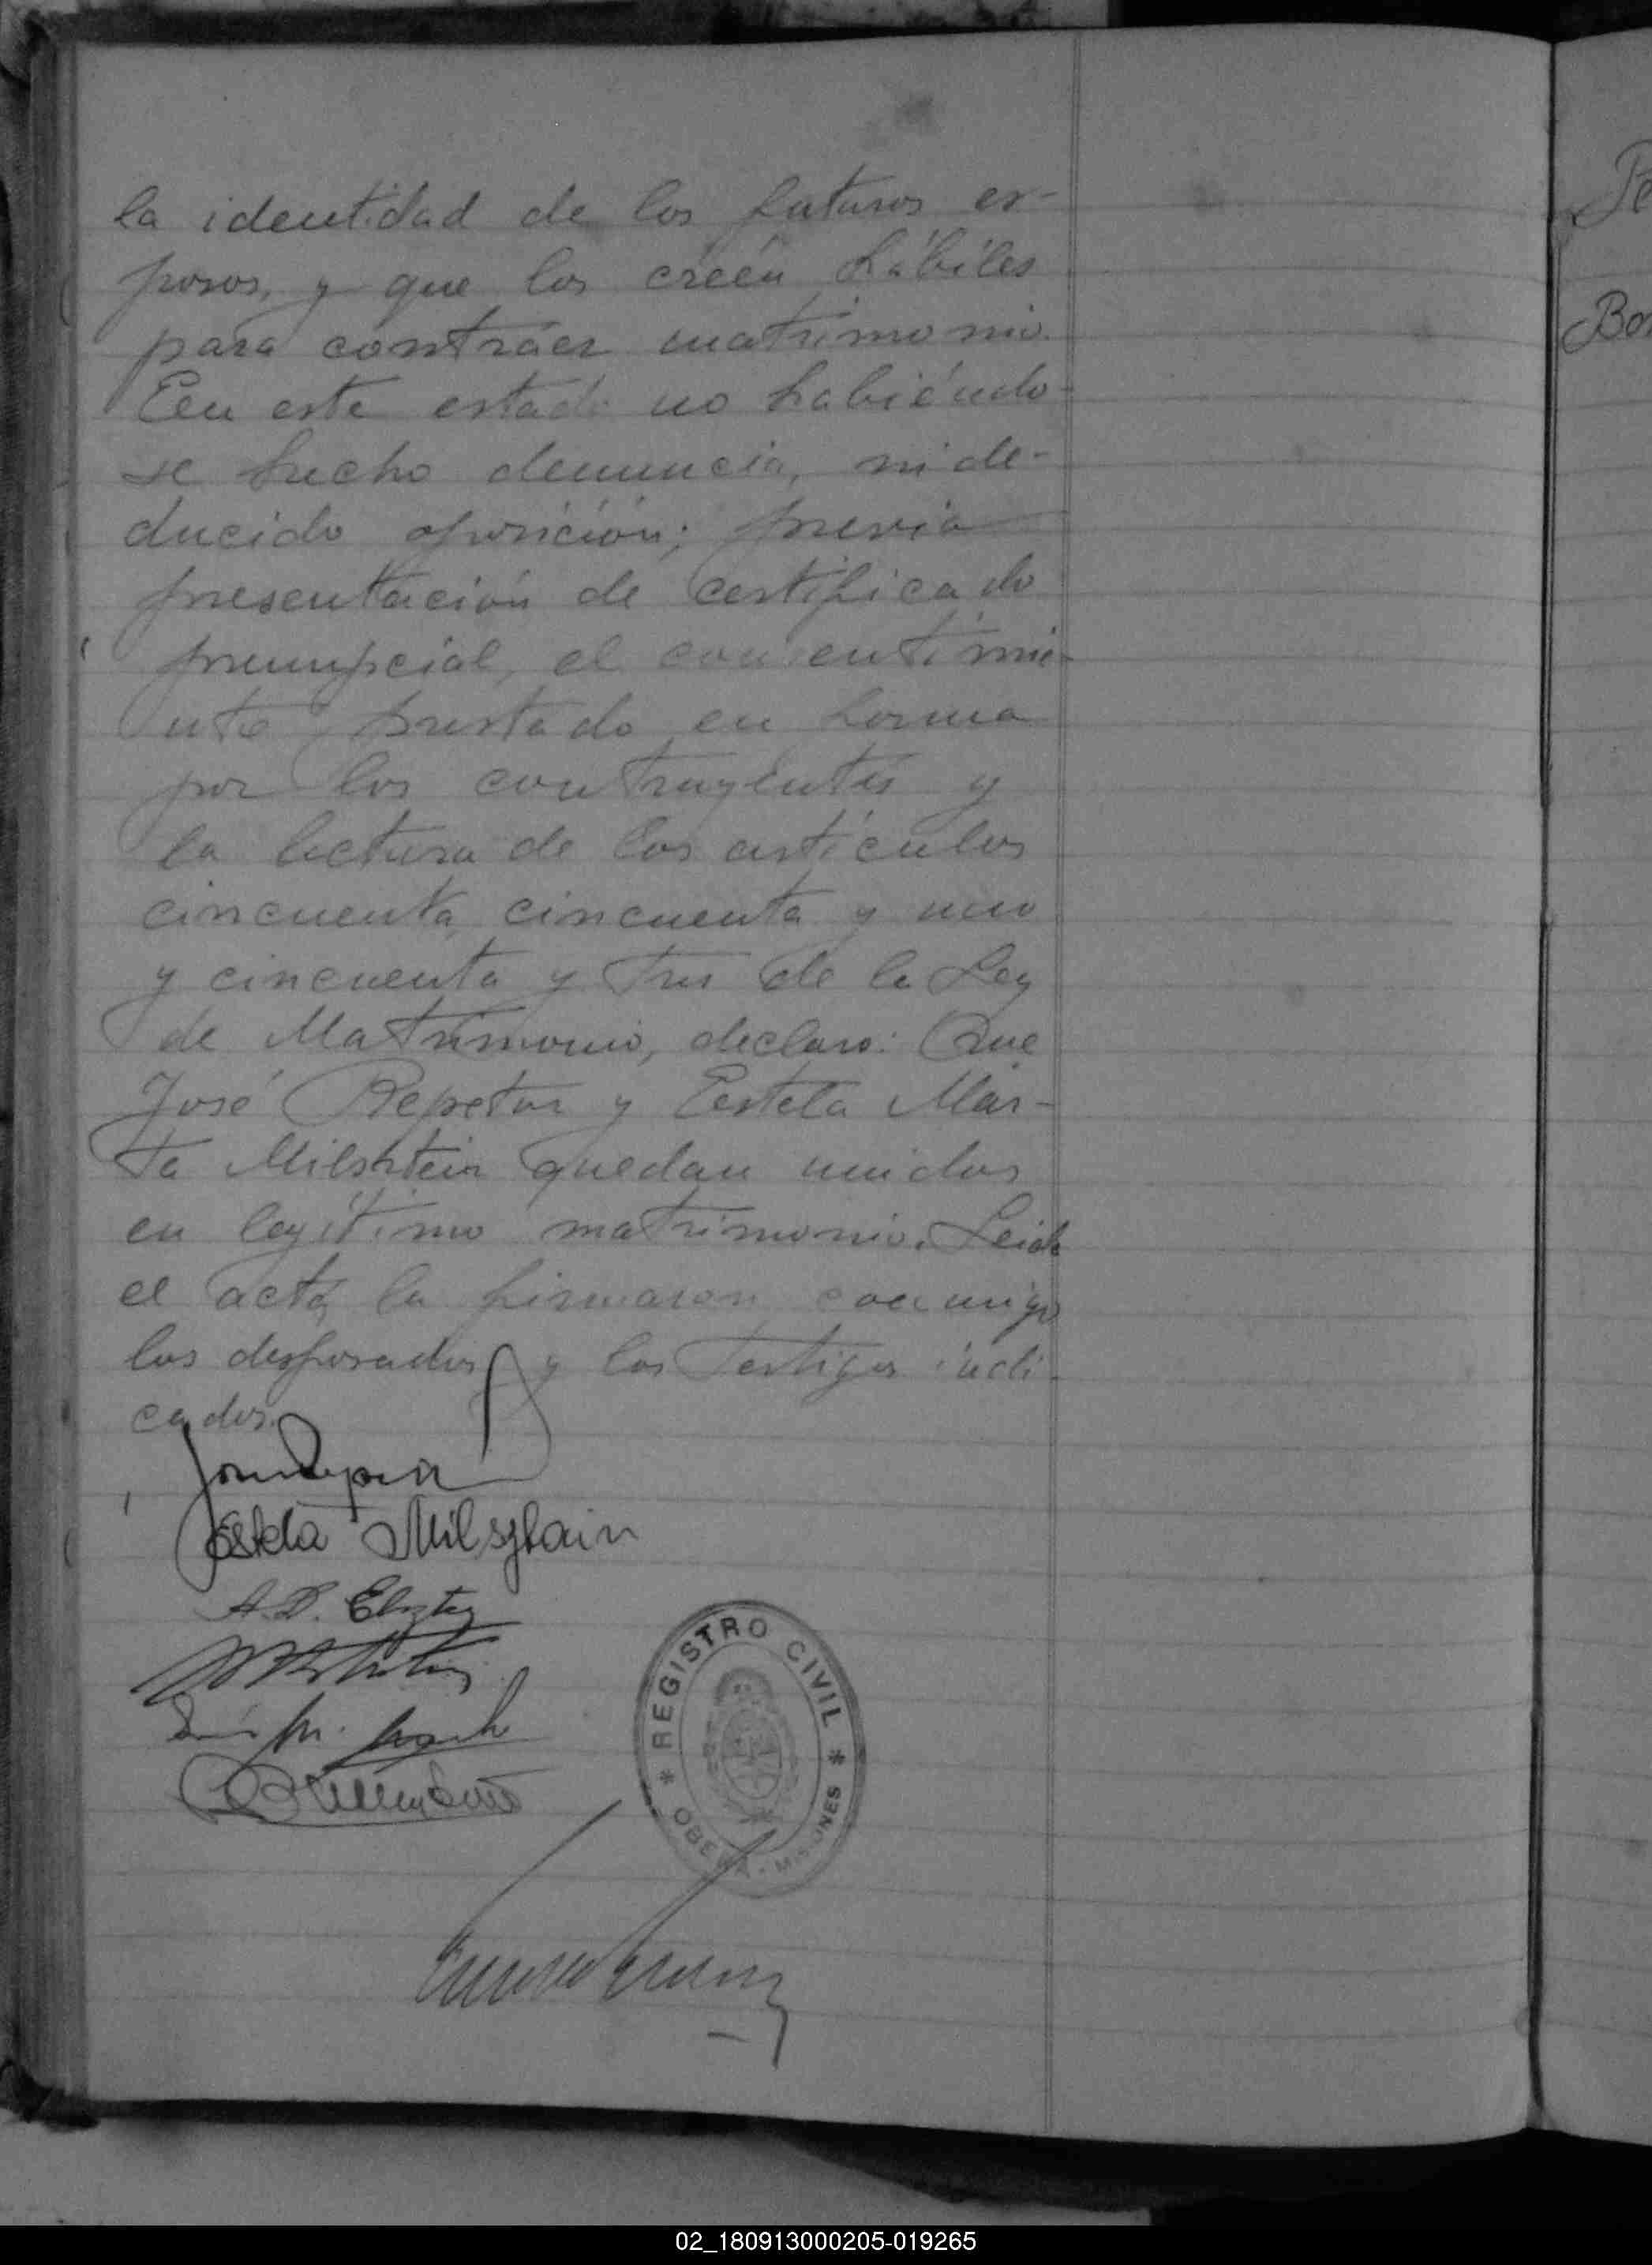 la identidad de los futuros es-
posos, y que los creén hábiles
para contraer matrimonio.
En este estado no habiéndo-
se hecho denuncia, ni de-
ducido oposición; previa
presentación de certificado
prenupcial, el consentimie-
nto prestado en forma
por los contrayentes y
la lectura de los artículos
cincuenta, cincuenta y uno
y cincuenta y tres de la Ley
de Matrimonio, declaro: Que
José Repetur y Estela Mar-
ta Milsztein quedan unidos
en legítimo matrimonio. Leida
el acta, la firmaron conmigo
los desposados y los testigos indi-
cados.
Estela Milsztain
A.D.
REGISTRO CIVIL
OBERA - MISIONES
Bo
02_180913000205-019265